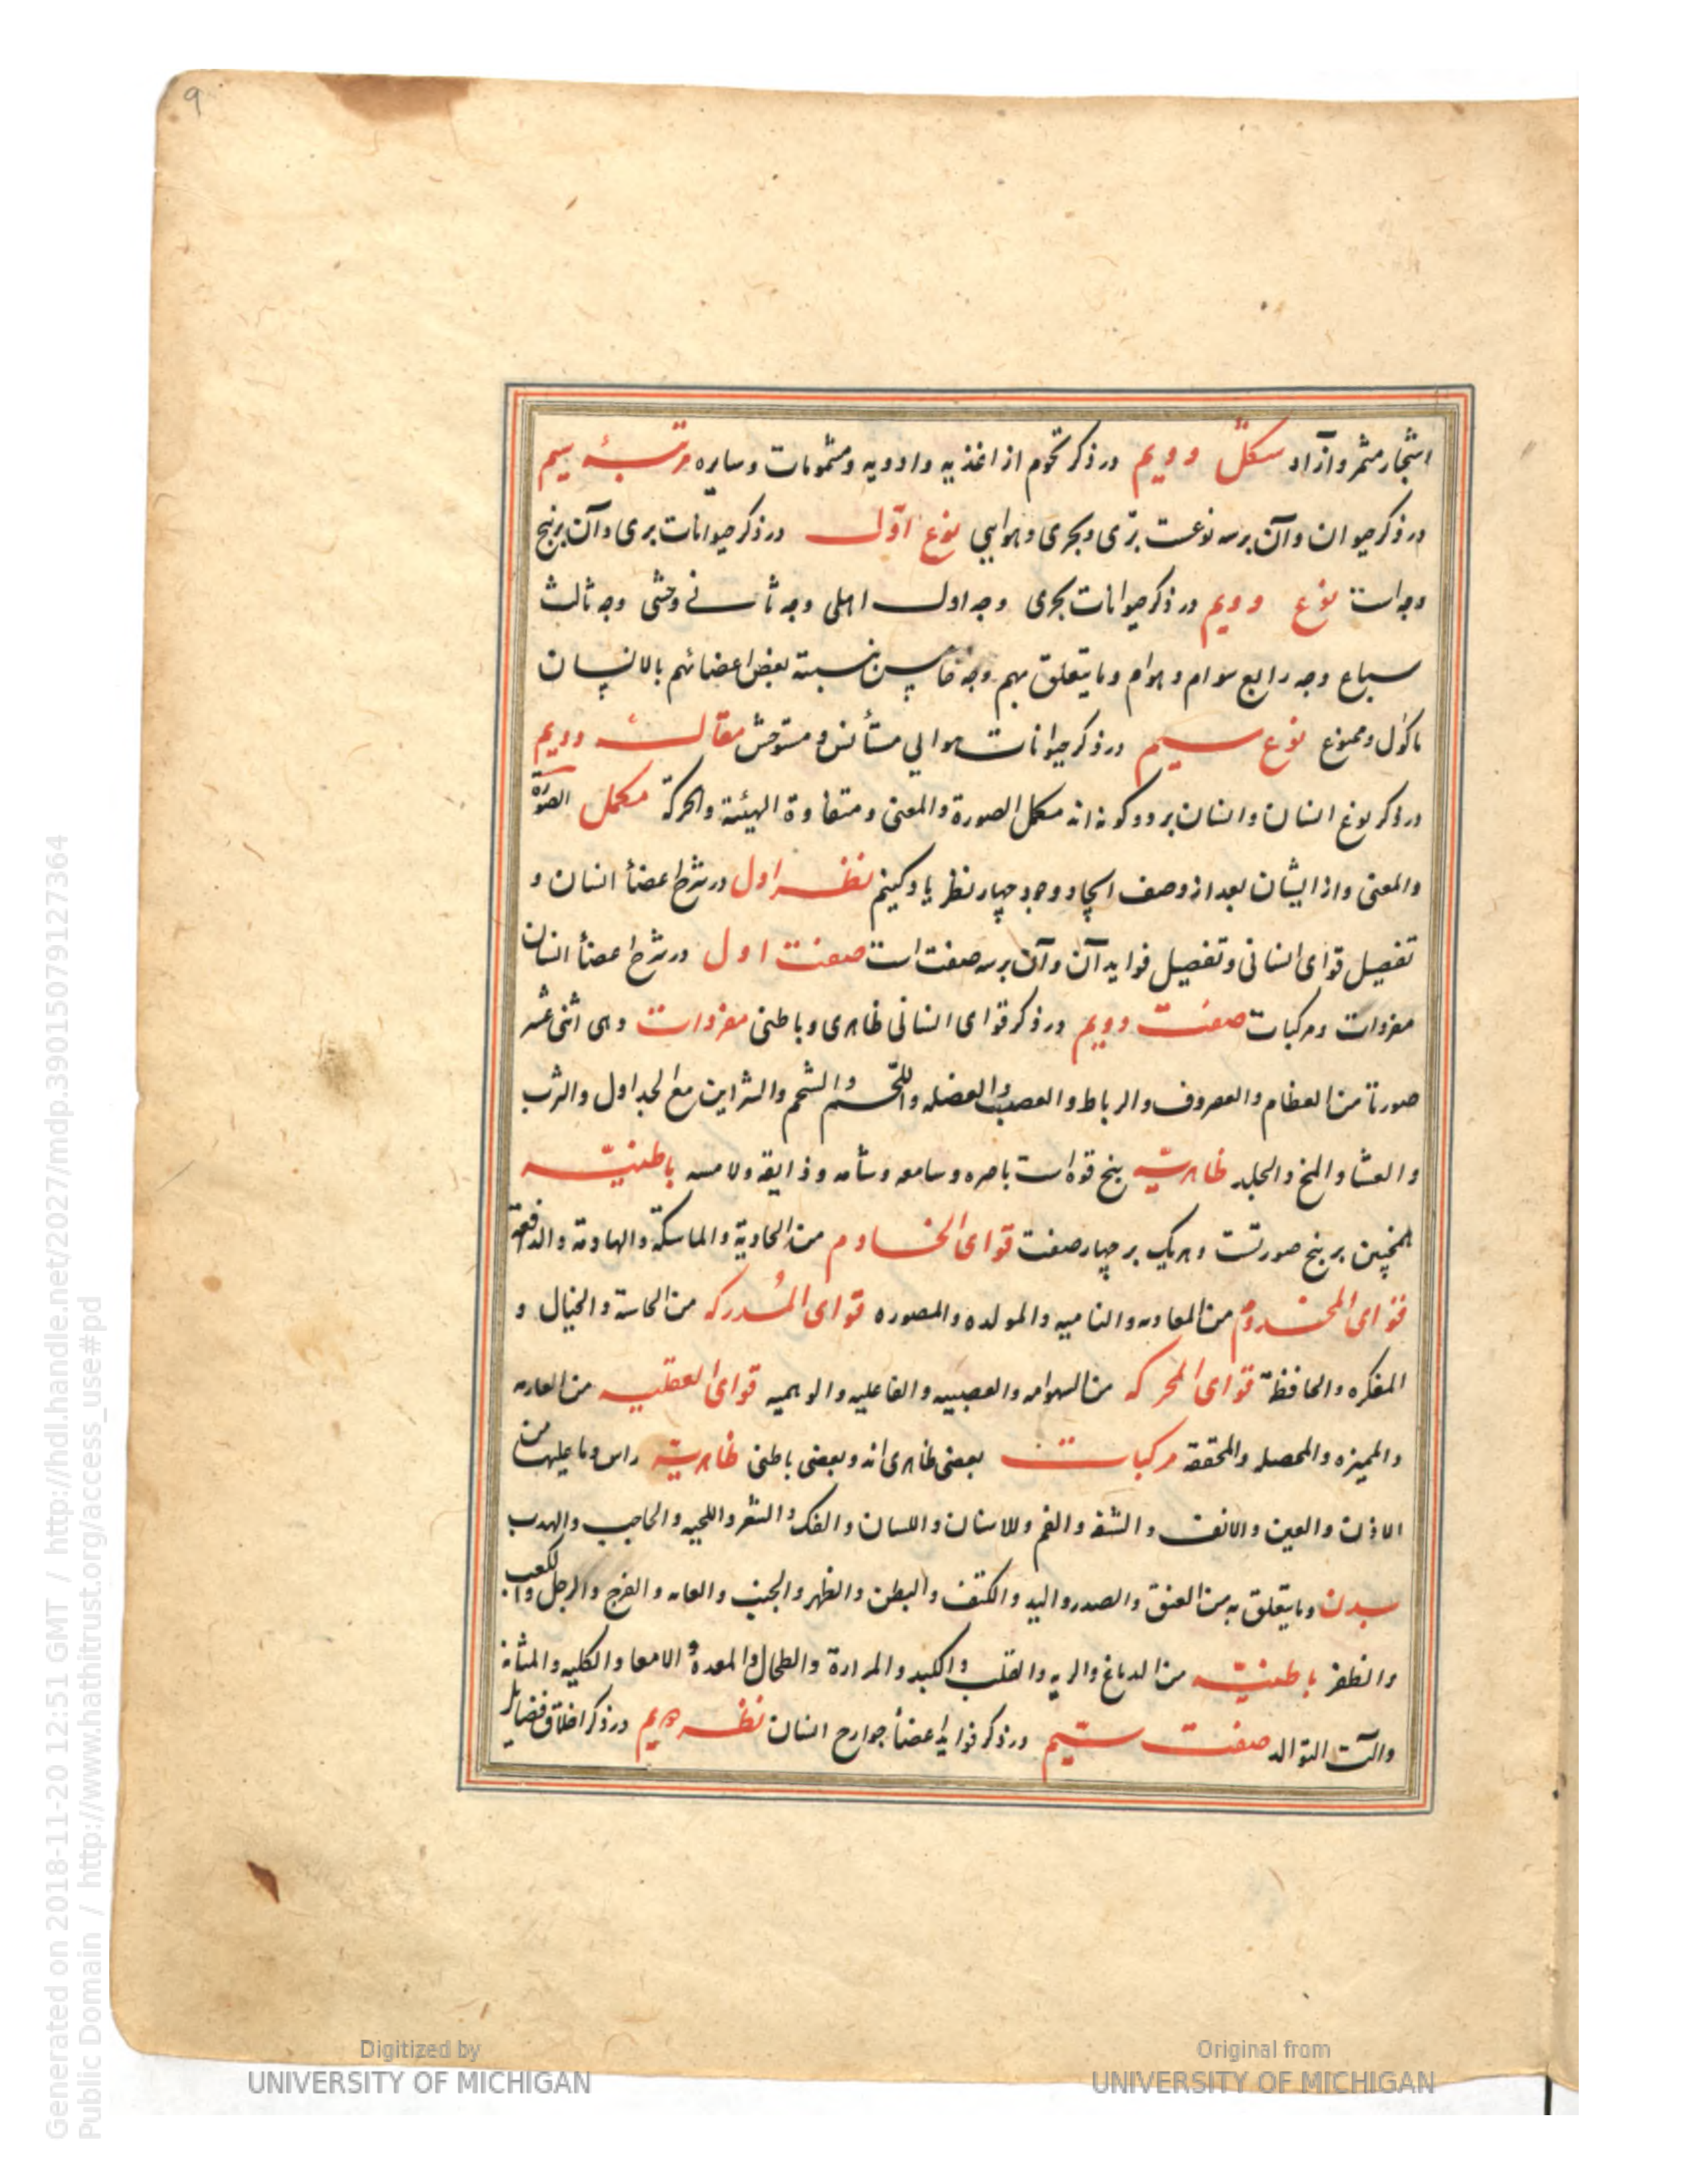 ٩
اشجار مثمر و آزاد شکل دویم در ذکر تخوم از اغذیه و ادویه و مشمومات و سایره مرتبهٔ سیم
در ذکر حیوان و آن بر سه نوعست برّی و بحری و هوایی نوع اوّل در ذکر حیوانات بری و آن بر پنج
وجه است نوع دویم در ذکر حیوانات بحری وجه اول اهلی وجه ثانی وحشی وجه ثالث
سباع وجه رابع سوام و هوام و ما یتعلق بهم وجه خامس نسبته بعض اعضائهم بالانسان
ماکول و ممنوع نوع سیم در ذکر حیوانات هوایی مستأنس و مستوحش مقالت دویم
در ذکر نوع انسان و انسان بر دو گونه اند مکمل الصورة والمعنی و متفاوة الهیئة والحرکة مکمل الصورة
والمعنی و از ایشان بعد از وصف ایجاد وجود چهار نظر یاد کنیم نظر اول در شرح اعضأ انسان و
تفصیل قوای انسانی و تفصیل فواید آن و آن بر سه صفت است صفت اول در شرح اعضأ انسان
مفردات و مرکبات صفت دویم در ذکر قوای انسانی ظاهری و باطنی مفردات وهی اثنی عشر
صورتا من العظام والغضروف والرباط والعصب والعضله واللّحم والشحم والشراین مع الجداول والثرب
والغشا والمخ والجلد ظاهریّه پنج قوه است باصره و سامعه و شامه و ذایقه و لامسه باطنیّه
همچنین بر پنج صورتست و هریک بر چهار صفت قوای الخادم من الجادیة والماسکة والهادمة والدافعة
قوای المخدوم من الغاذیه والنامیه والمولده والمصوره قوای المُدرکه من الحاسة والخیال و
المفکره والحافظة قوای المحرکه من الشهوانیه والعصبیه والفاعلیه والوهمیه قوای العقلیه من العارفه
والممیزه والمحصله والمحققة مرکبات بعضی ظاهری اند و بعضی باطنی ظاهریّه راس و ما علیها من
الاذن والعین والانف والشفه والفم وللاسنان واللسان والفک والشعر واللحیه والحاجب والهدب
بدن و ما یتعلق به من العنق والصدر والید والکتف والبطن والظهر والجنب والعانه والفرج والرجل والکعب
والظفر باطنیّه من الدماغ والریه والقلب والکبد والمرارة والطحال والمعدة و الامعا والکلیه والمثانه
وآلت التوالد صفت سیّم در ذکر فواید اعضأ جوارح انسان نظر دویم در ذکر اخلاق فضایل
Digitized by
UNIVERSITY OF MICHIGAN
Original from
UNIVERSITY OF MICHIGAN
Generated on 2018-11-20 12:51 GMT / http://hdl.handle.net/2027/mdp.39015079127364
Public Domain / http://www.hathitrust.org/access_use#pd